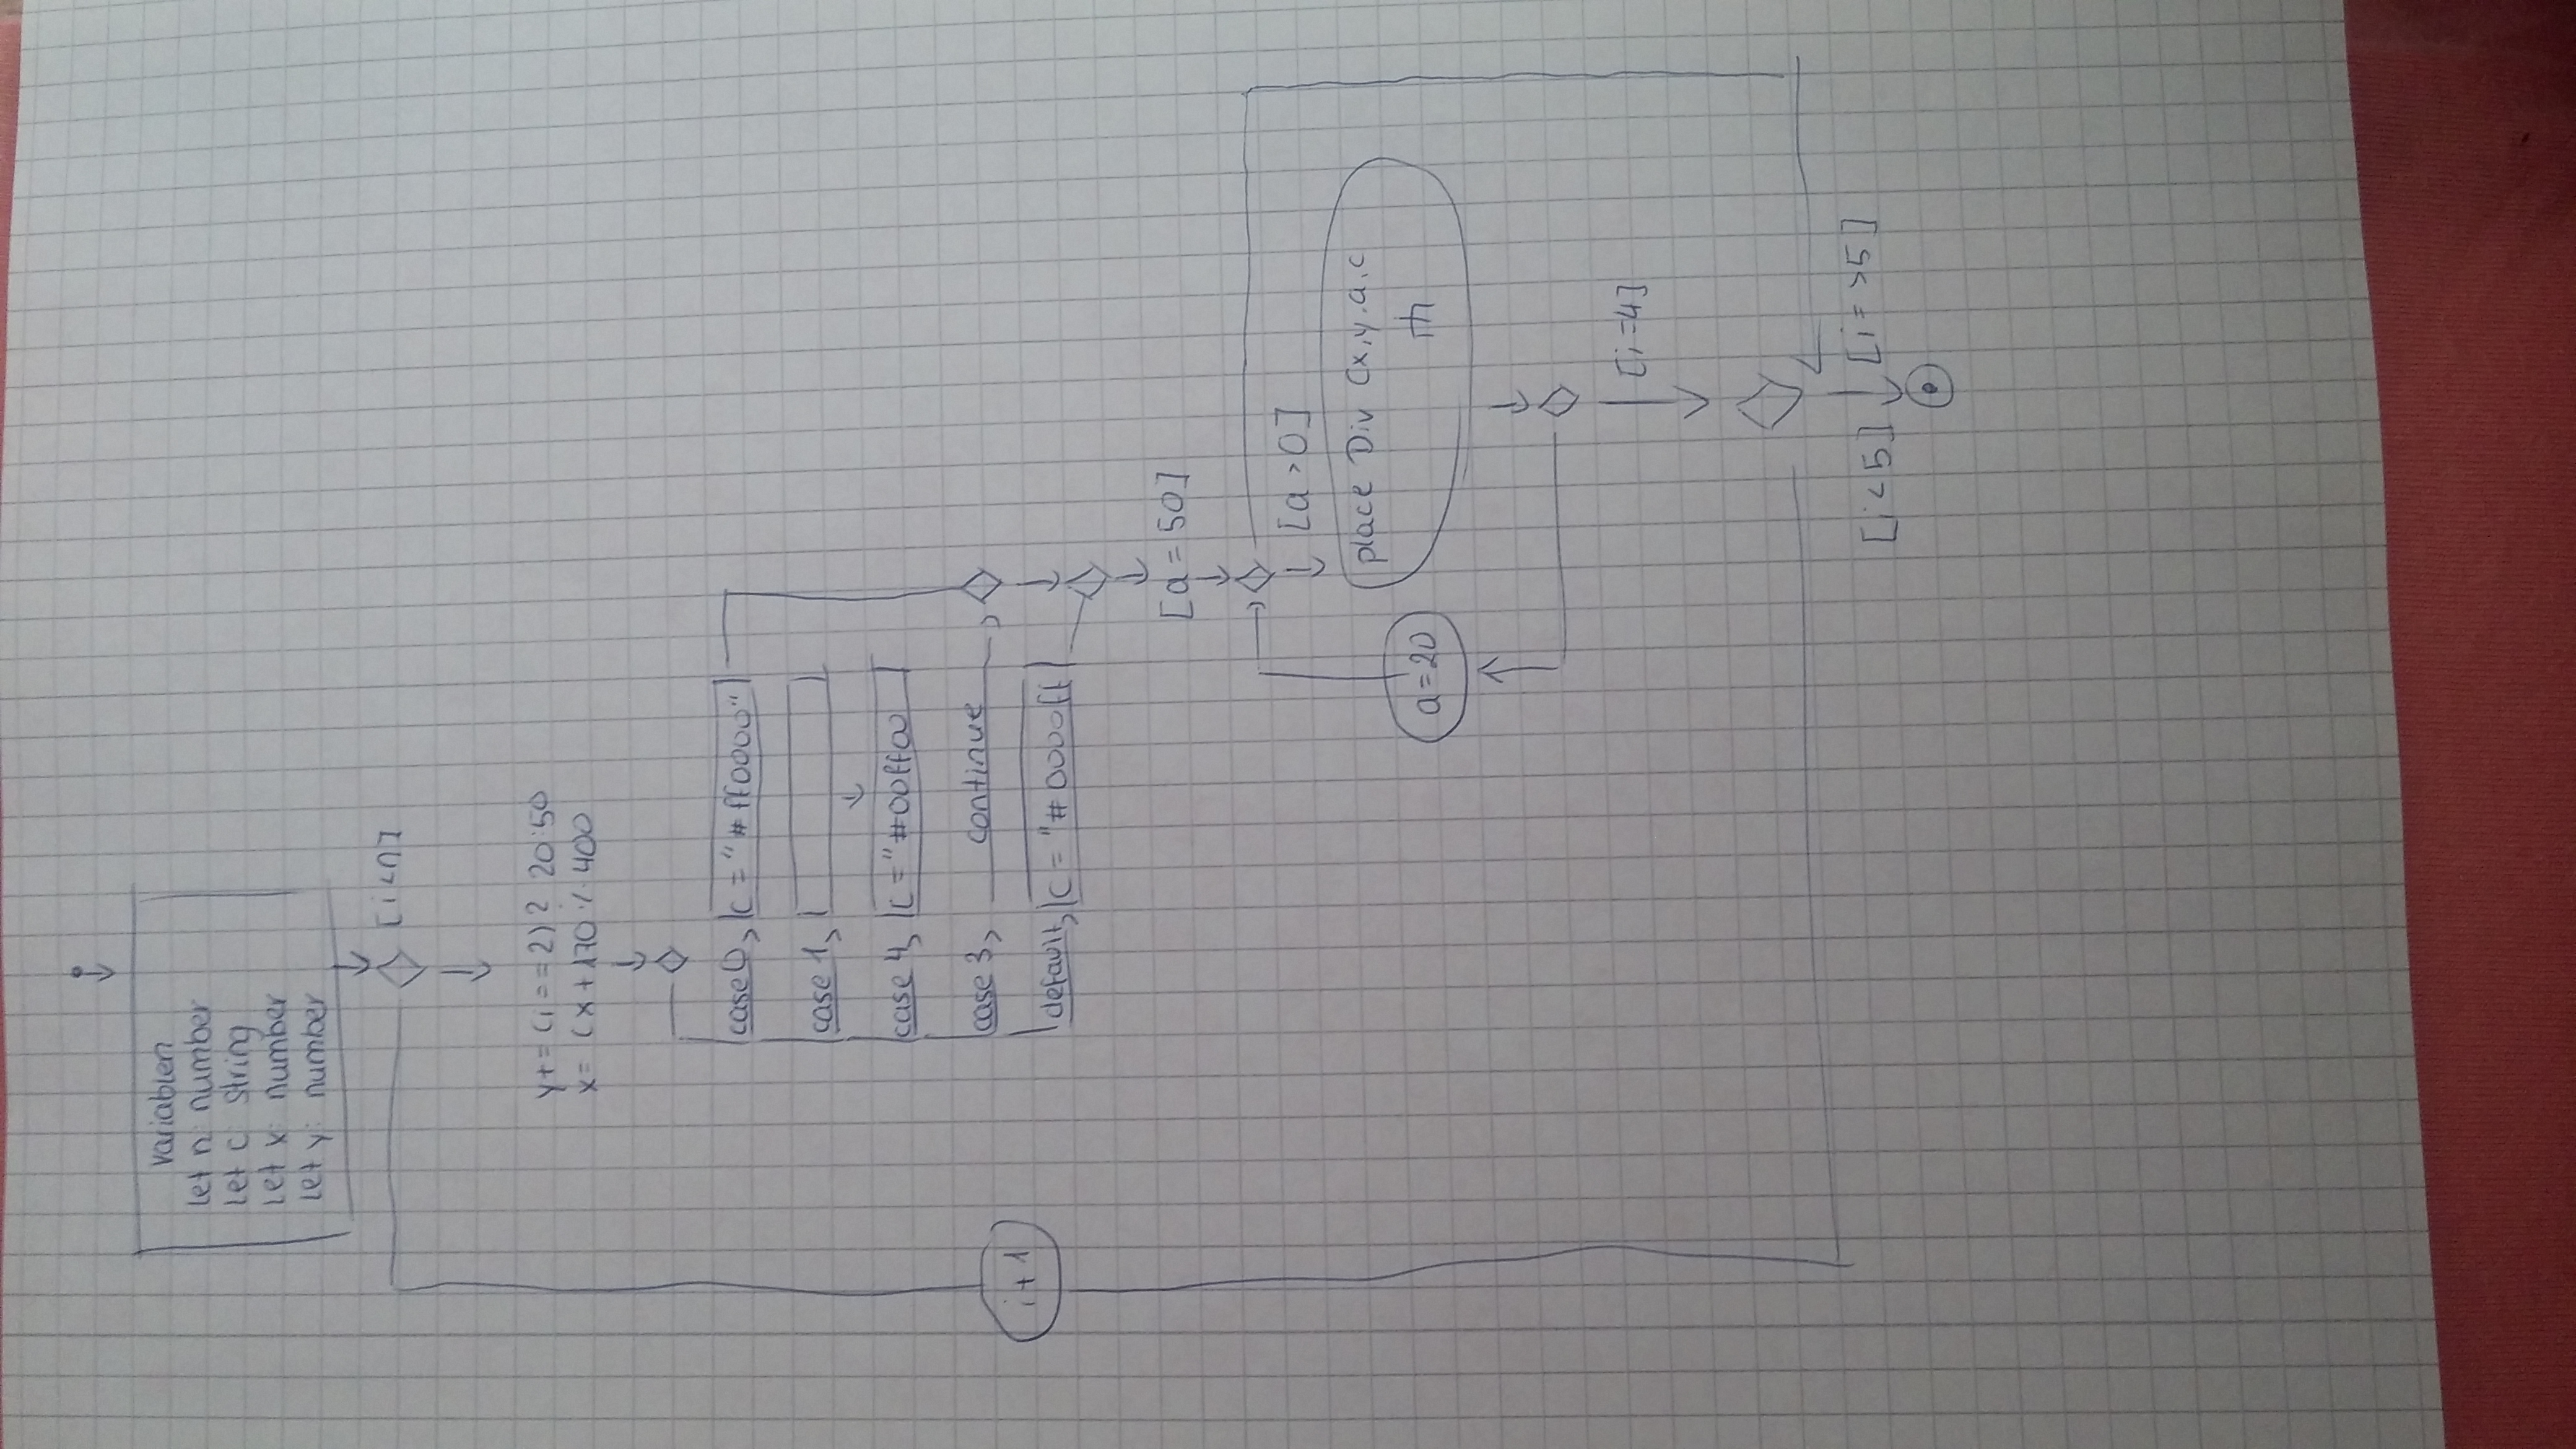 variablen
let n: number
let c: string
let x: number
let y: number
[i<n]
y+= (i==2)? 20:50
x= (x+170 % 400
case 0, c = "#ff0000"
case 1,
case 4, c = "#00ff00
case 3, continue
default, c = "#0000ff
i+1
[a=50]
[a>0]
place Div (x,y.a.c
a=20
[i=4]
[i<5] [i=>5]